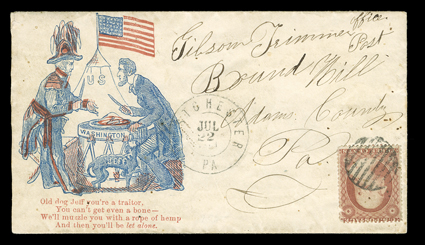 U S
WASHINGTON
Old dog Jeff you're a traitor,
You can't get even a bone—
We'll muzzle you with a rope of hemp
And then you'll be let alone.
CHESTER
JUL
22
PA
Gibson Trimmer
Post office
Round Hill
Adams County
Pa